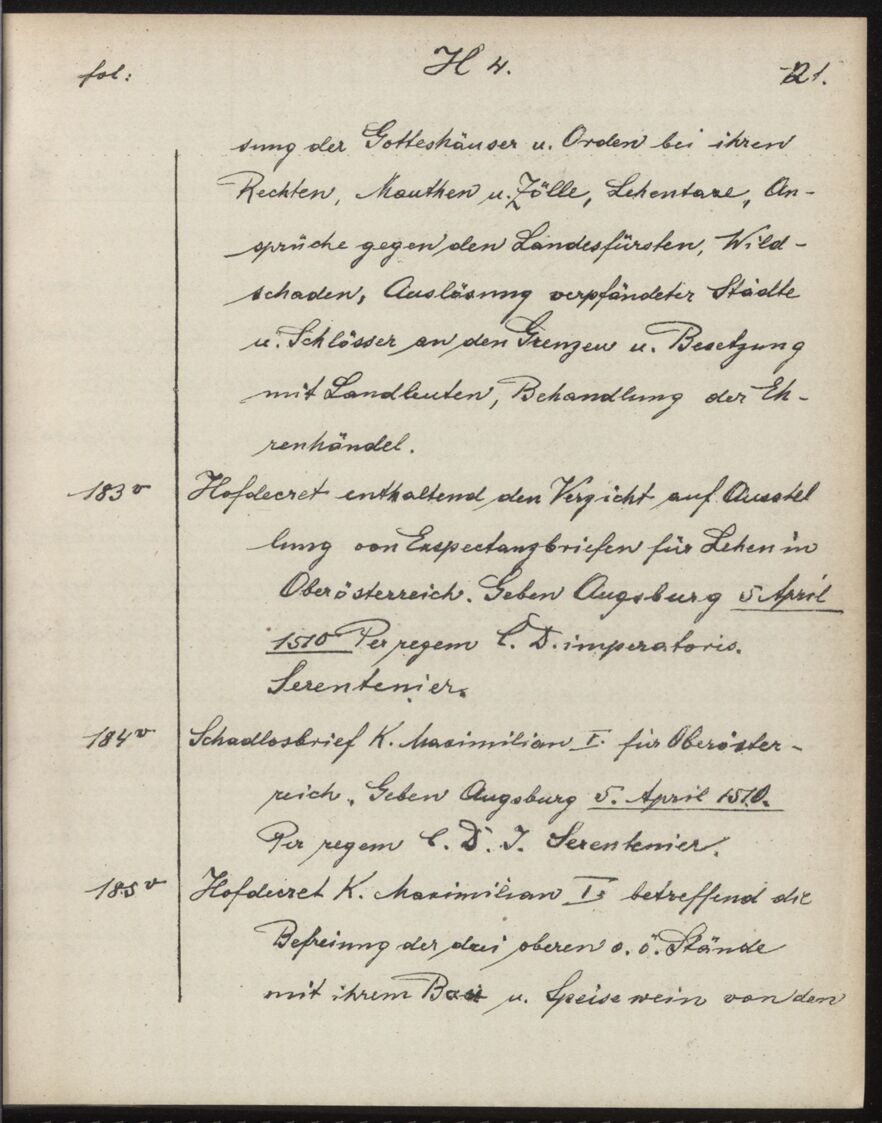 fol: H 4. 21.
sung der Gotteshäuser u. Orden bei ihren
Rechten, Mauthen u. Zölle, Lehentaxe, An-
sprüche gegen den Landesfürsten, Wild-
schaden, Auslösung verpfändeter Städte
u. Schlösser an den Grenzen u. Besetzung
mit Landleuten, Behandlung der Eh-
renhändel.
183v Hofdecret enthaltend den Verzicht auf Ausstel
lung von Exspectanzbriefen für Lehen in
Oberösterreich. Geben Augsburg 5 April
1510 Per regem C. D. imperatoris.
Serentenier.
184v Schadlosbrief K. Maximilian I. für Oberöster-
reich. Geben Augsburg 5. April 1510.
Per regem C. D. I. Serentenier.
185v Hofdecret K. Maximilian I. betreffend die
Befreiung der drei oberen o. ö. Stände
mit ihrem Bau u. Speisewein von den